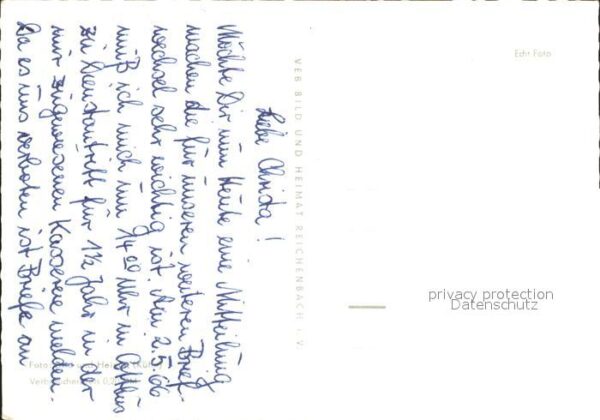 Liebe Christa!
Möchte Dir nun Heute eine Mitteilung
machen die für unseren weiteren Brief-
wechsel sehr wichtig ist. Am 2.5.66
muß ich mich um 14⁰⁰ Uhr in Cottbus
zu Dienstantritt für 1½ Jahr in der
mir zugewiesenen Kasserne melden.
Da es uns verboten ist Briefe an
VEB BILD UND HEIMAT REICHENBACH I. V.
Echt Foto
privacy protection
Datenschutz
Foto
Heimat